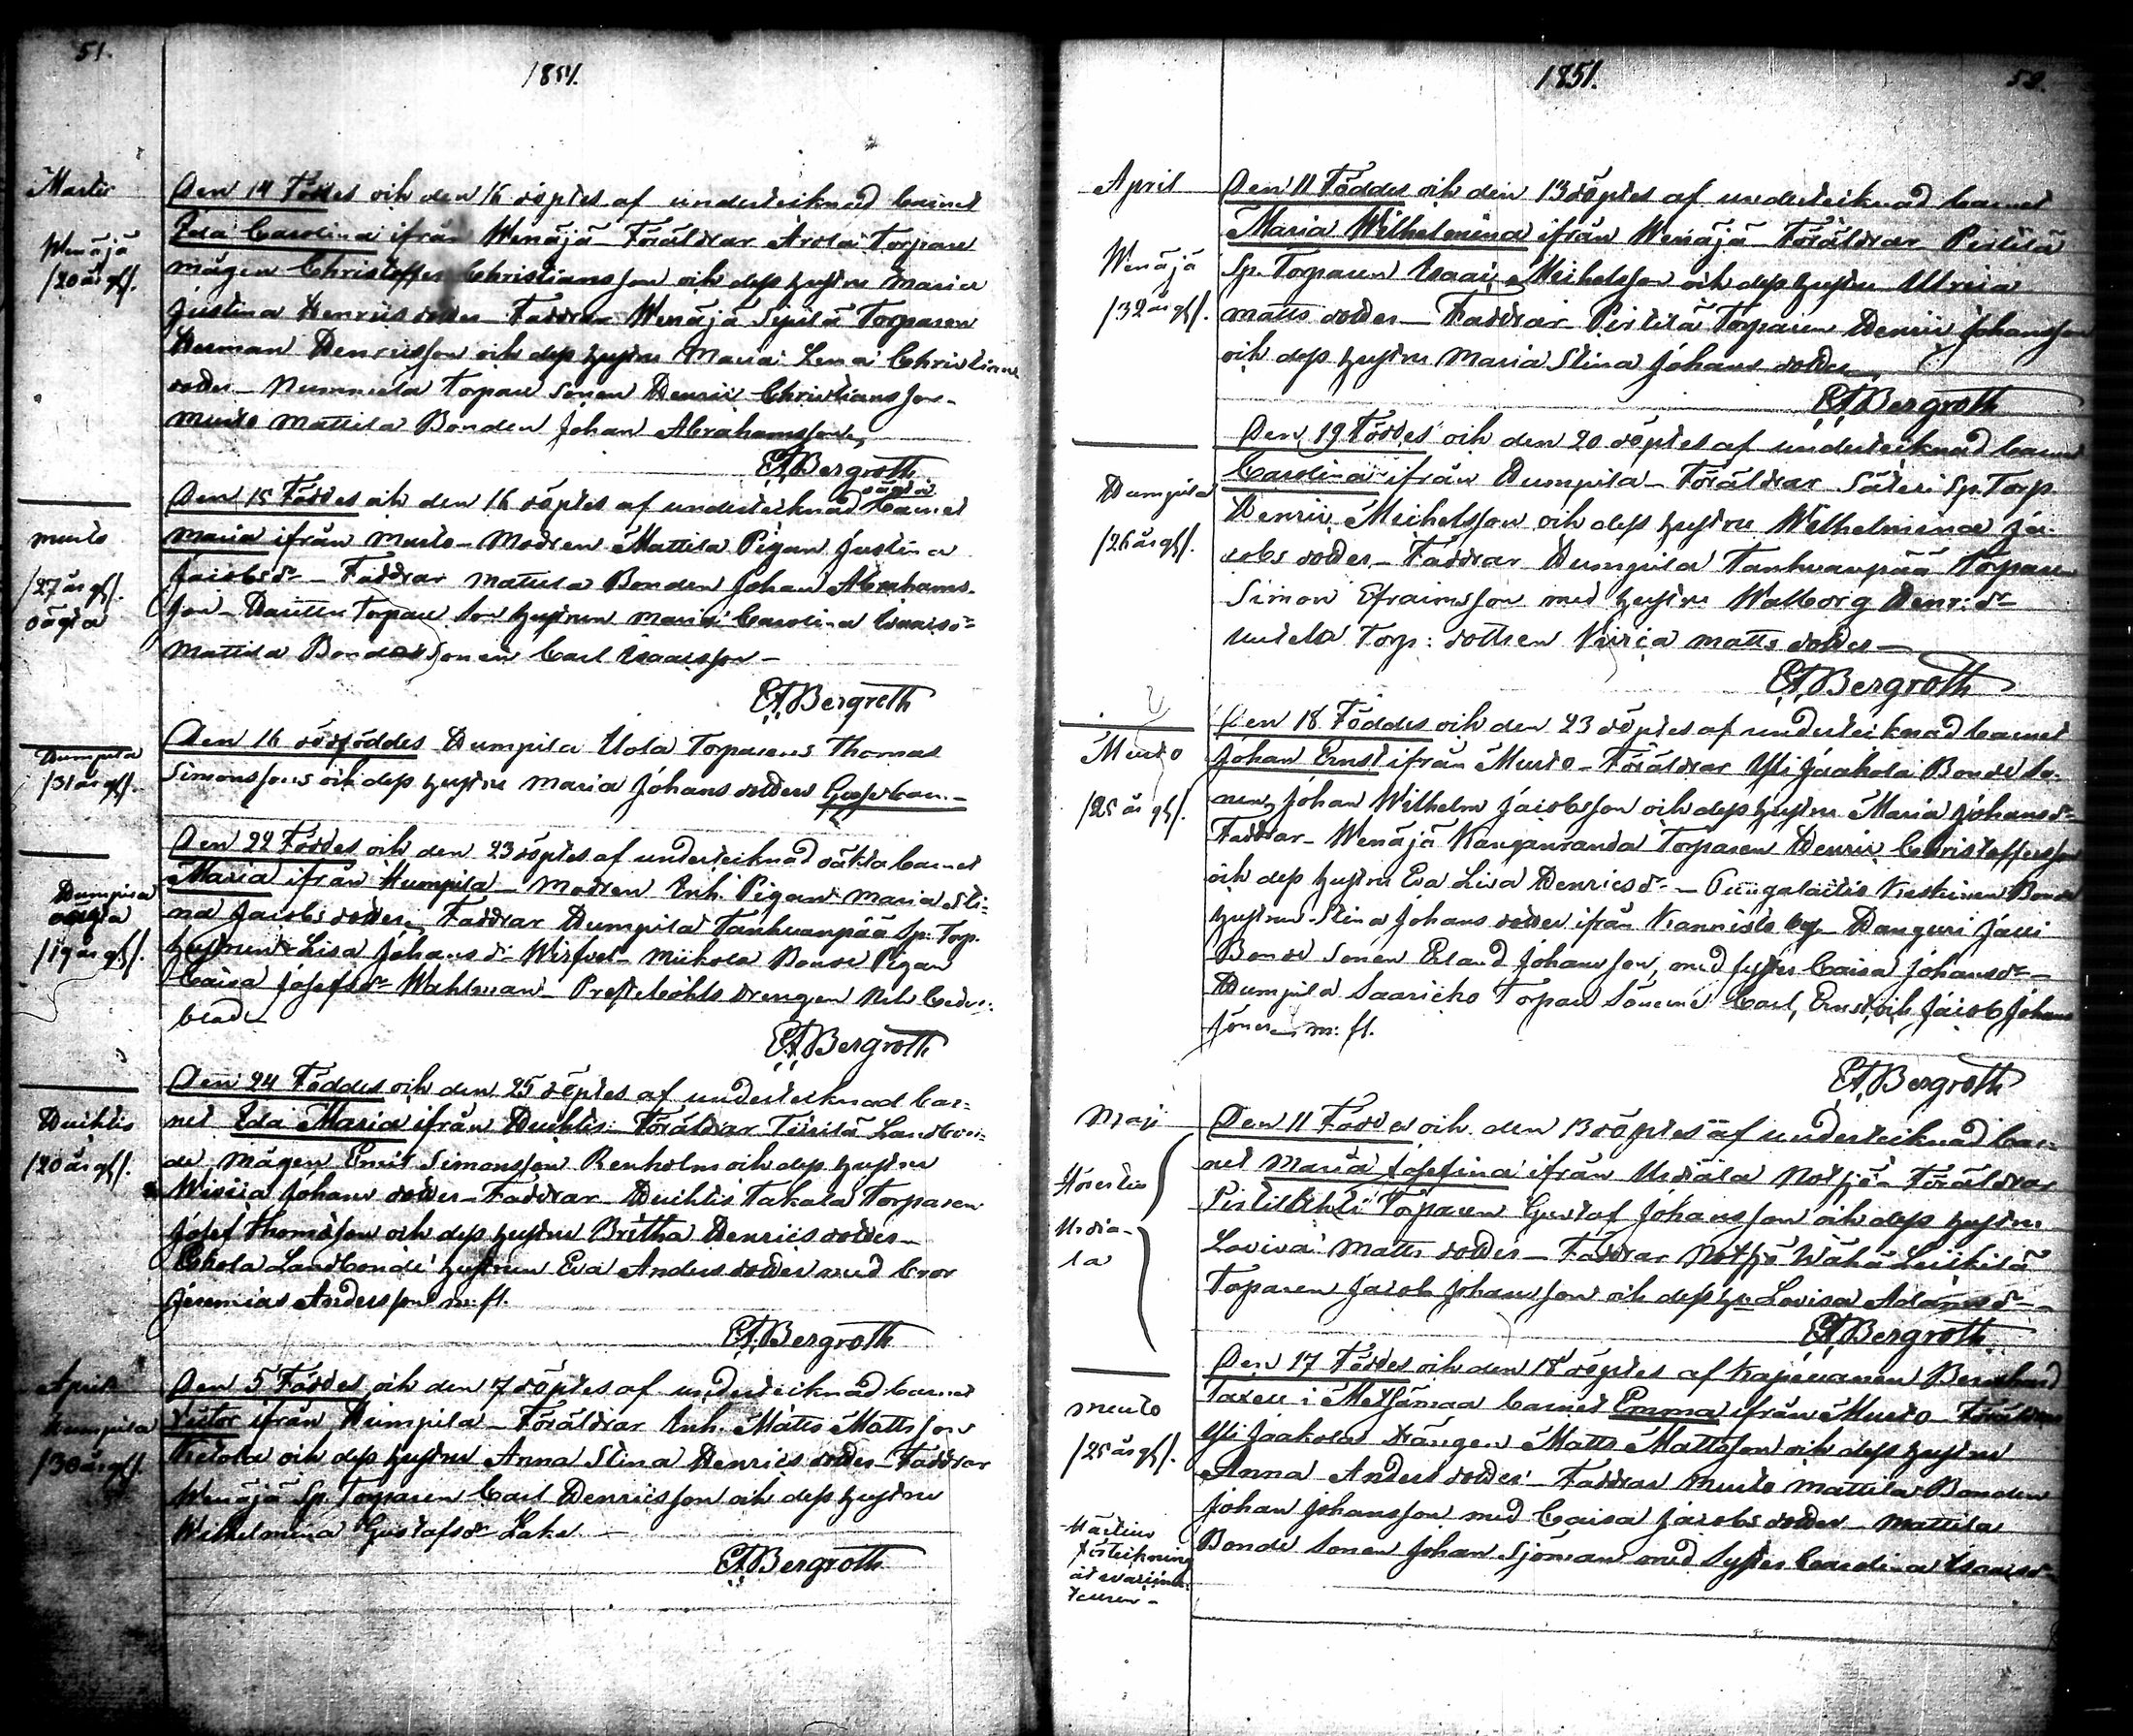 51.
1851.
Martii
Den 14 Föddes och den 16 döptes af undertecknad barnet
Wenäjä
Carolina ifrån Wenäjä Föräldrar Arola Torpare
/20 år gl/.
mågen Christoffer Christiansson och dess hustru Maria
Justina Henricsdotter Faddrar Wenäjä Sepilä Torparen
Herman Henricsson och dess hustru Maria Lena Christians
dotter Nummela Torpare sonen Henric Christiansson
Murto Mattila Bonden Johan Abrahamsson
EABergroth
Den 15 Föddes och den 16 döptes af undertecknad oägta barnet
Murto
Maria ifrån Murto Modren Mattila Pigan Justina
/27 år gl/.
oägta
Jacobsdr Faddrar Mattila Bonden Johan Abrahams-
son Torpare son hustrun Maria Carolina Isaacsdr
Mattila Bonde sonen Carl Isaacsson
EABergroth
Humpila
Den 16 dödföddes Humpila Uola Torparens Thomas
/31 år gl/.
Simonssons och dess hustru Maria Johansdotters Gossebarn
Den 22 Föddes och den 23 döptes af undertecknad oäkta barnet
Humpila
oägta
Maria ifrån Humpila Modren Inh. Pigan Maria Sti-
/19 år gl/.
na Jacobsdotter Faddrar Humpila Tanhuanpää Sp. Torp.
hustrun Lisa Johansdr Mikola Bonde Pigan
Caisa Josefsdr Wahlman drengen Ceder-
blad
EABergroth
Den 24 Föddes och den 25 döptes af undertecknad bar-
Huhtis
net Ida Maria ifrån Huhtis Föräldrar Tiirilä Landbon-
/20 år gl/.
de mågen Emil Simonsson Renholm och dess hustru
Johansdotter Faddrar Huhtis Takala Torparen
Josef Thomasson och dess hustru Britha Henricsdotter
Eskola Landbonde hustrun Eva Andersdotter med bror
Jeremias Andersson m: fl.
EABergroth
April
Den 5 Föddes och den 7 döptes af undertecknad barnet
Humpila
Victor ifrån Humpila Föräldrar Inh. Matts Mattsson
/30 år gl/.
Ketola och dess hustru Anna Stina Henricsdotter Faddrar
Wenäjä Sp. Torparen Carl Henricsson och dess hustru
Wilhelmina Gustafsdr Lake
EABergroth
1851.
52.
April
Den 11 Föddes och den 13 döptes af undertecknad barnet
Maria Wilhelmina ifrån Wenäjä Föräldrar Perttilä
Wenäjä
Sp. Torparen Isaac Michelsson och dess hustru Ulrica
/32 år gl/.
Mattsdotter Faddrar Perttilä Torparen Henric Johansson
och dess hustru Maria Stina Johansdotter
EABergroth
Den 19 Föddes och den 20 döptes af undertecknad barnet
Humpila
Carolina ifrån Humpila Föräldrar Säteri Sp. Torp.
/26 år gl/.
Henric Michelsson och dess hustru Wilhelmina Ja-
cobsdotter Faddrar Humpila Tanhuanpää Torparen
Simon Efraimsson med hustru Walborg Henr:dr
Torp: dottren Mattsdotter
EABergroth
Den 18 Föddes och den 23 döptes af undertecknad barnet
Murto
Johan Ernst ifrån Murto Föräldrar Yli Jaakola Bonde So-
/25 år gl/.
nen Johan Wilhelm Jacobsson och dess hustru Maria Johansdr
Faddrar Wenäjä Kangasranda Torparen Henric Christoffersson
och dess hustru Eva Lisa Henricsdr Keskinen Bonde
hustrun Stina Johansdotter ifrån Kannisto by Jacci
Bonde sonen Erland Johansson med syster Caisa Johansdr
Humpila Saaricko Torpare Sönerne Carl, Ernst och Jacob Johans
söner m: fl.
EABergroth
Maji
Den 11 Föddes och den 13 döptes af undertecknad bar-
net Maria Josefina ifrån Urdiala Notsjö Föräldrar
Urdia-
la
Torparen Gustaf Johansson och dess hustru
Lovisa Mattsdotter Faddrar Notsjö Wähä Leikilä
Toparen Jacob Johansson och dess h: Lovisa Adamsdr
EABergroth
Den 17 Föddes och den 18 döptes af Kapellanen Bernhard
Murto
i Metsämaa barnet Emma ifrån Murto Föräldrar
/25 år gl/.
Yli Jaakola drängen Matts Mattsson och dess hustru
Anna Andersdotter Faddrar Murto Mattila Bonden
Johan Johansson med Caisa Jacobsdotter Mattila
Bonde sonen Johan Sjöman med Syster Carolina Isaacsdr